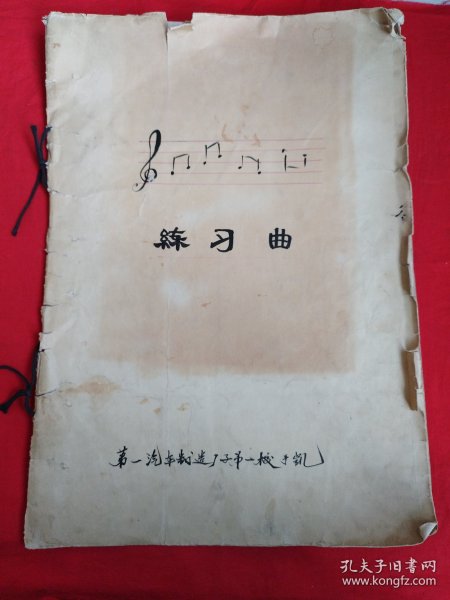 练习曲
第一汽车制造厂子弟一校于凯
孔夫子旧书网
www.kongfz.com